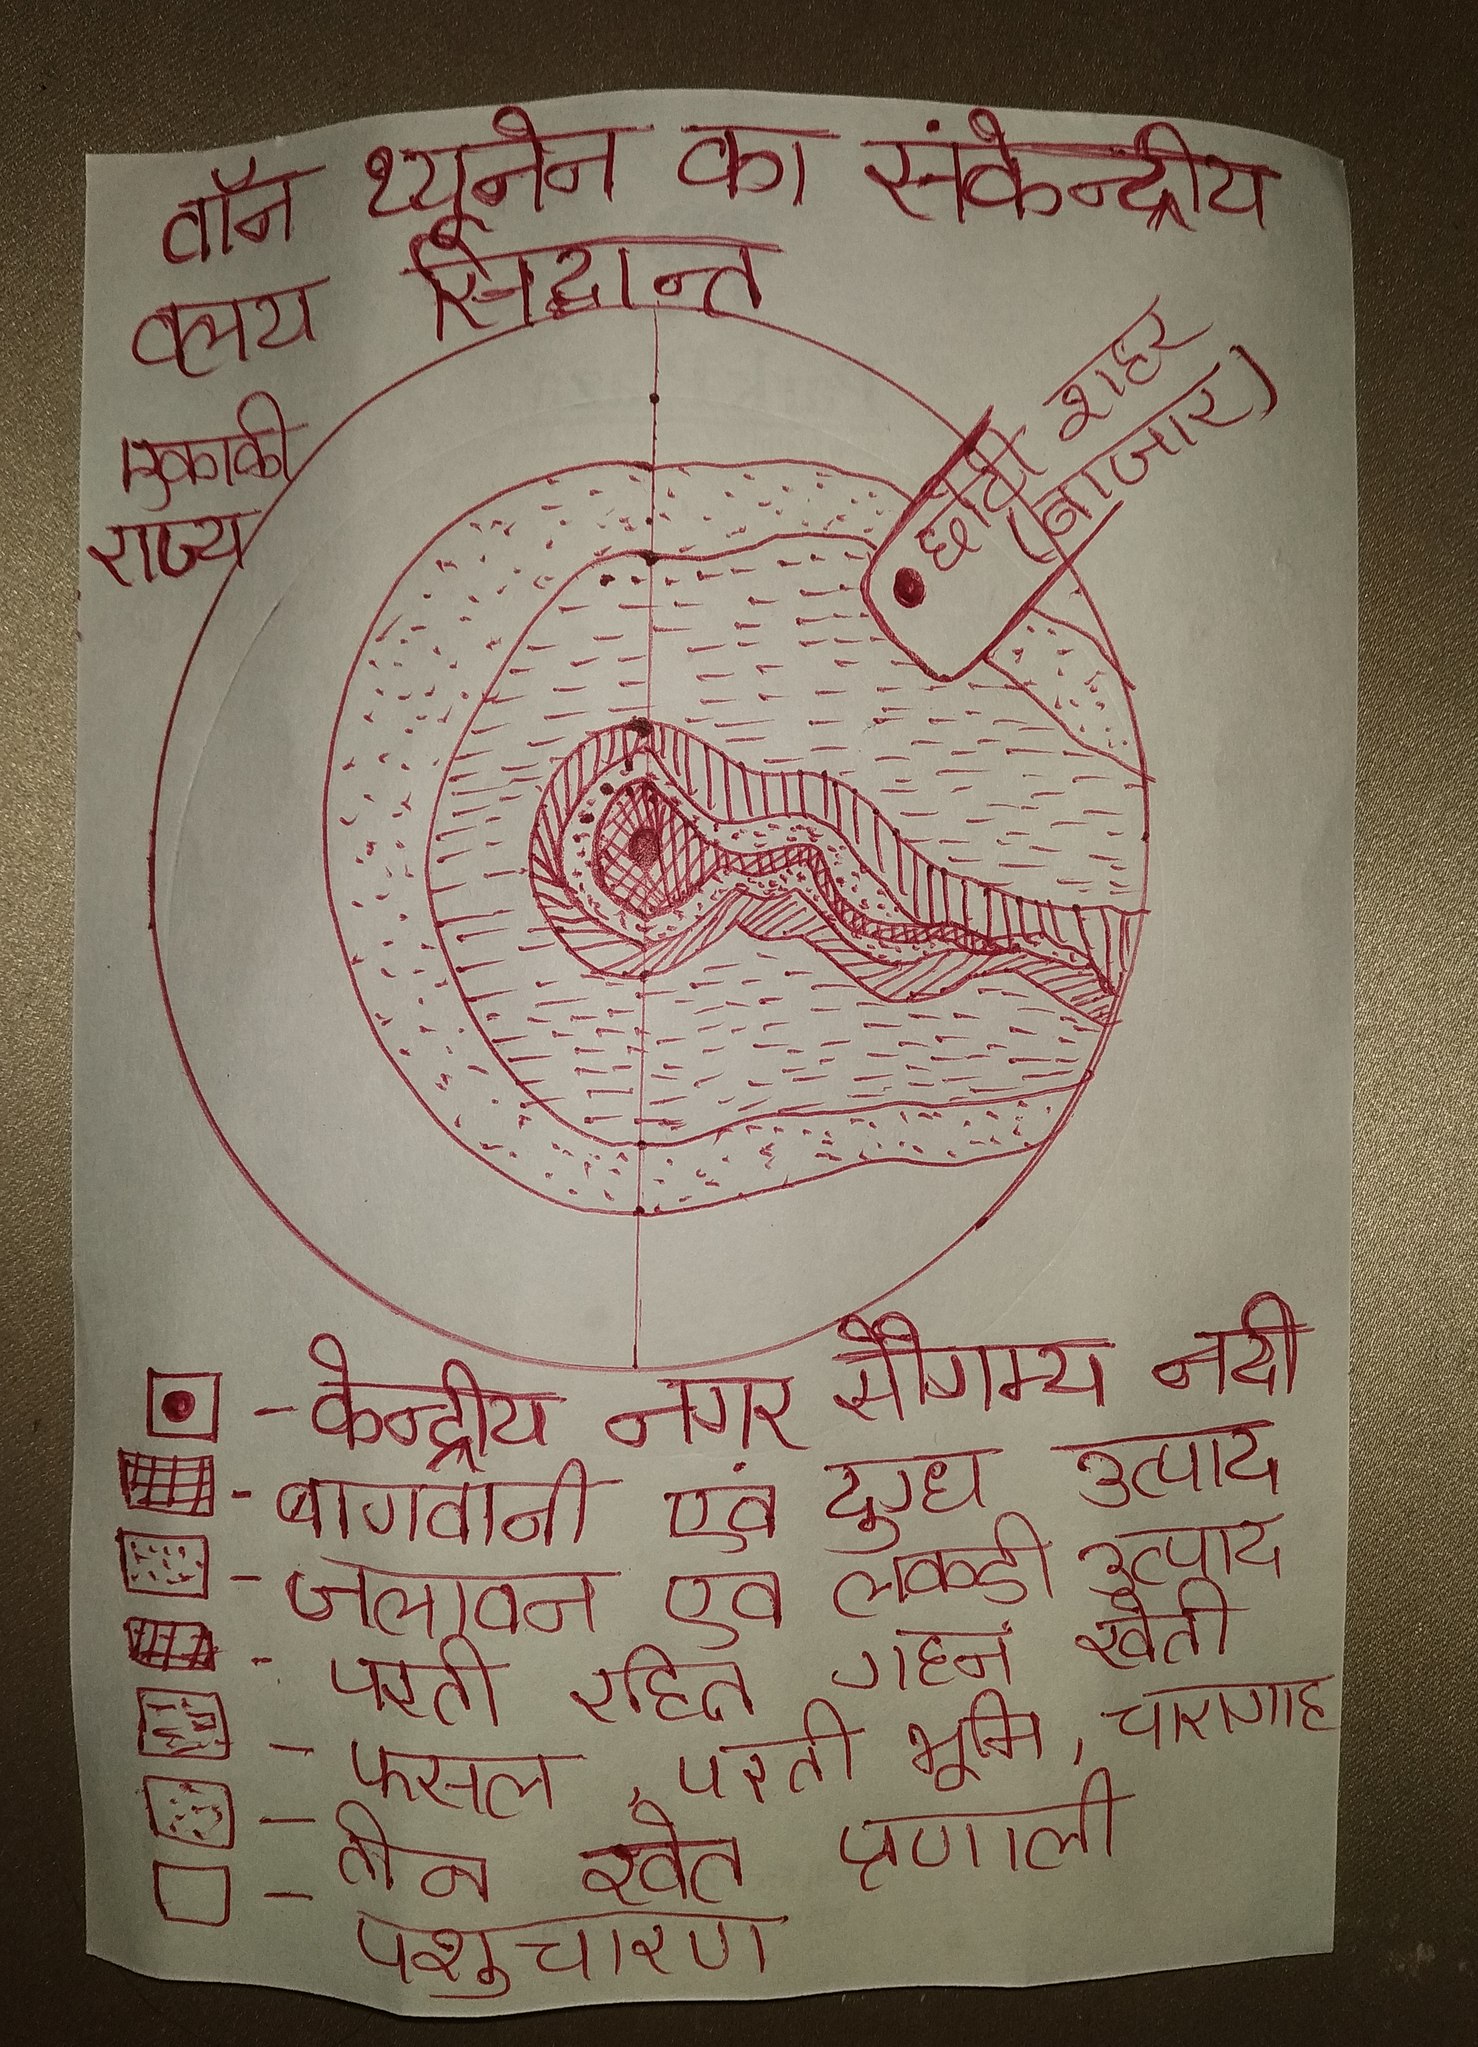 वॉन थ्यूनेन का संकेन्द्रीय
वलय सिद्धान्त
एकाकी
राज्य
छोटी शहर
(बाजार)
केन्द्रीय नगर नौगम्य नदी
बागवानी एवं दुग्ध उत्पाद
जलावन एव लकडी उत्पाद
परती रहित गहन खेती
फसल, परती भूमि, चारागाह
तीन खेत प्रणाली
पशुचारण